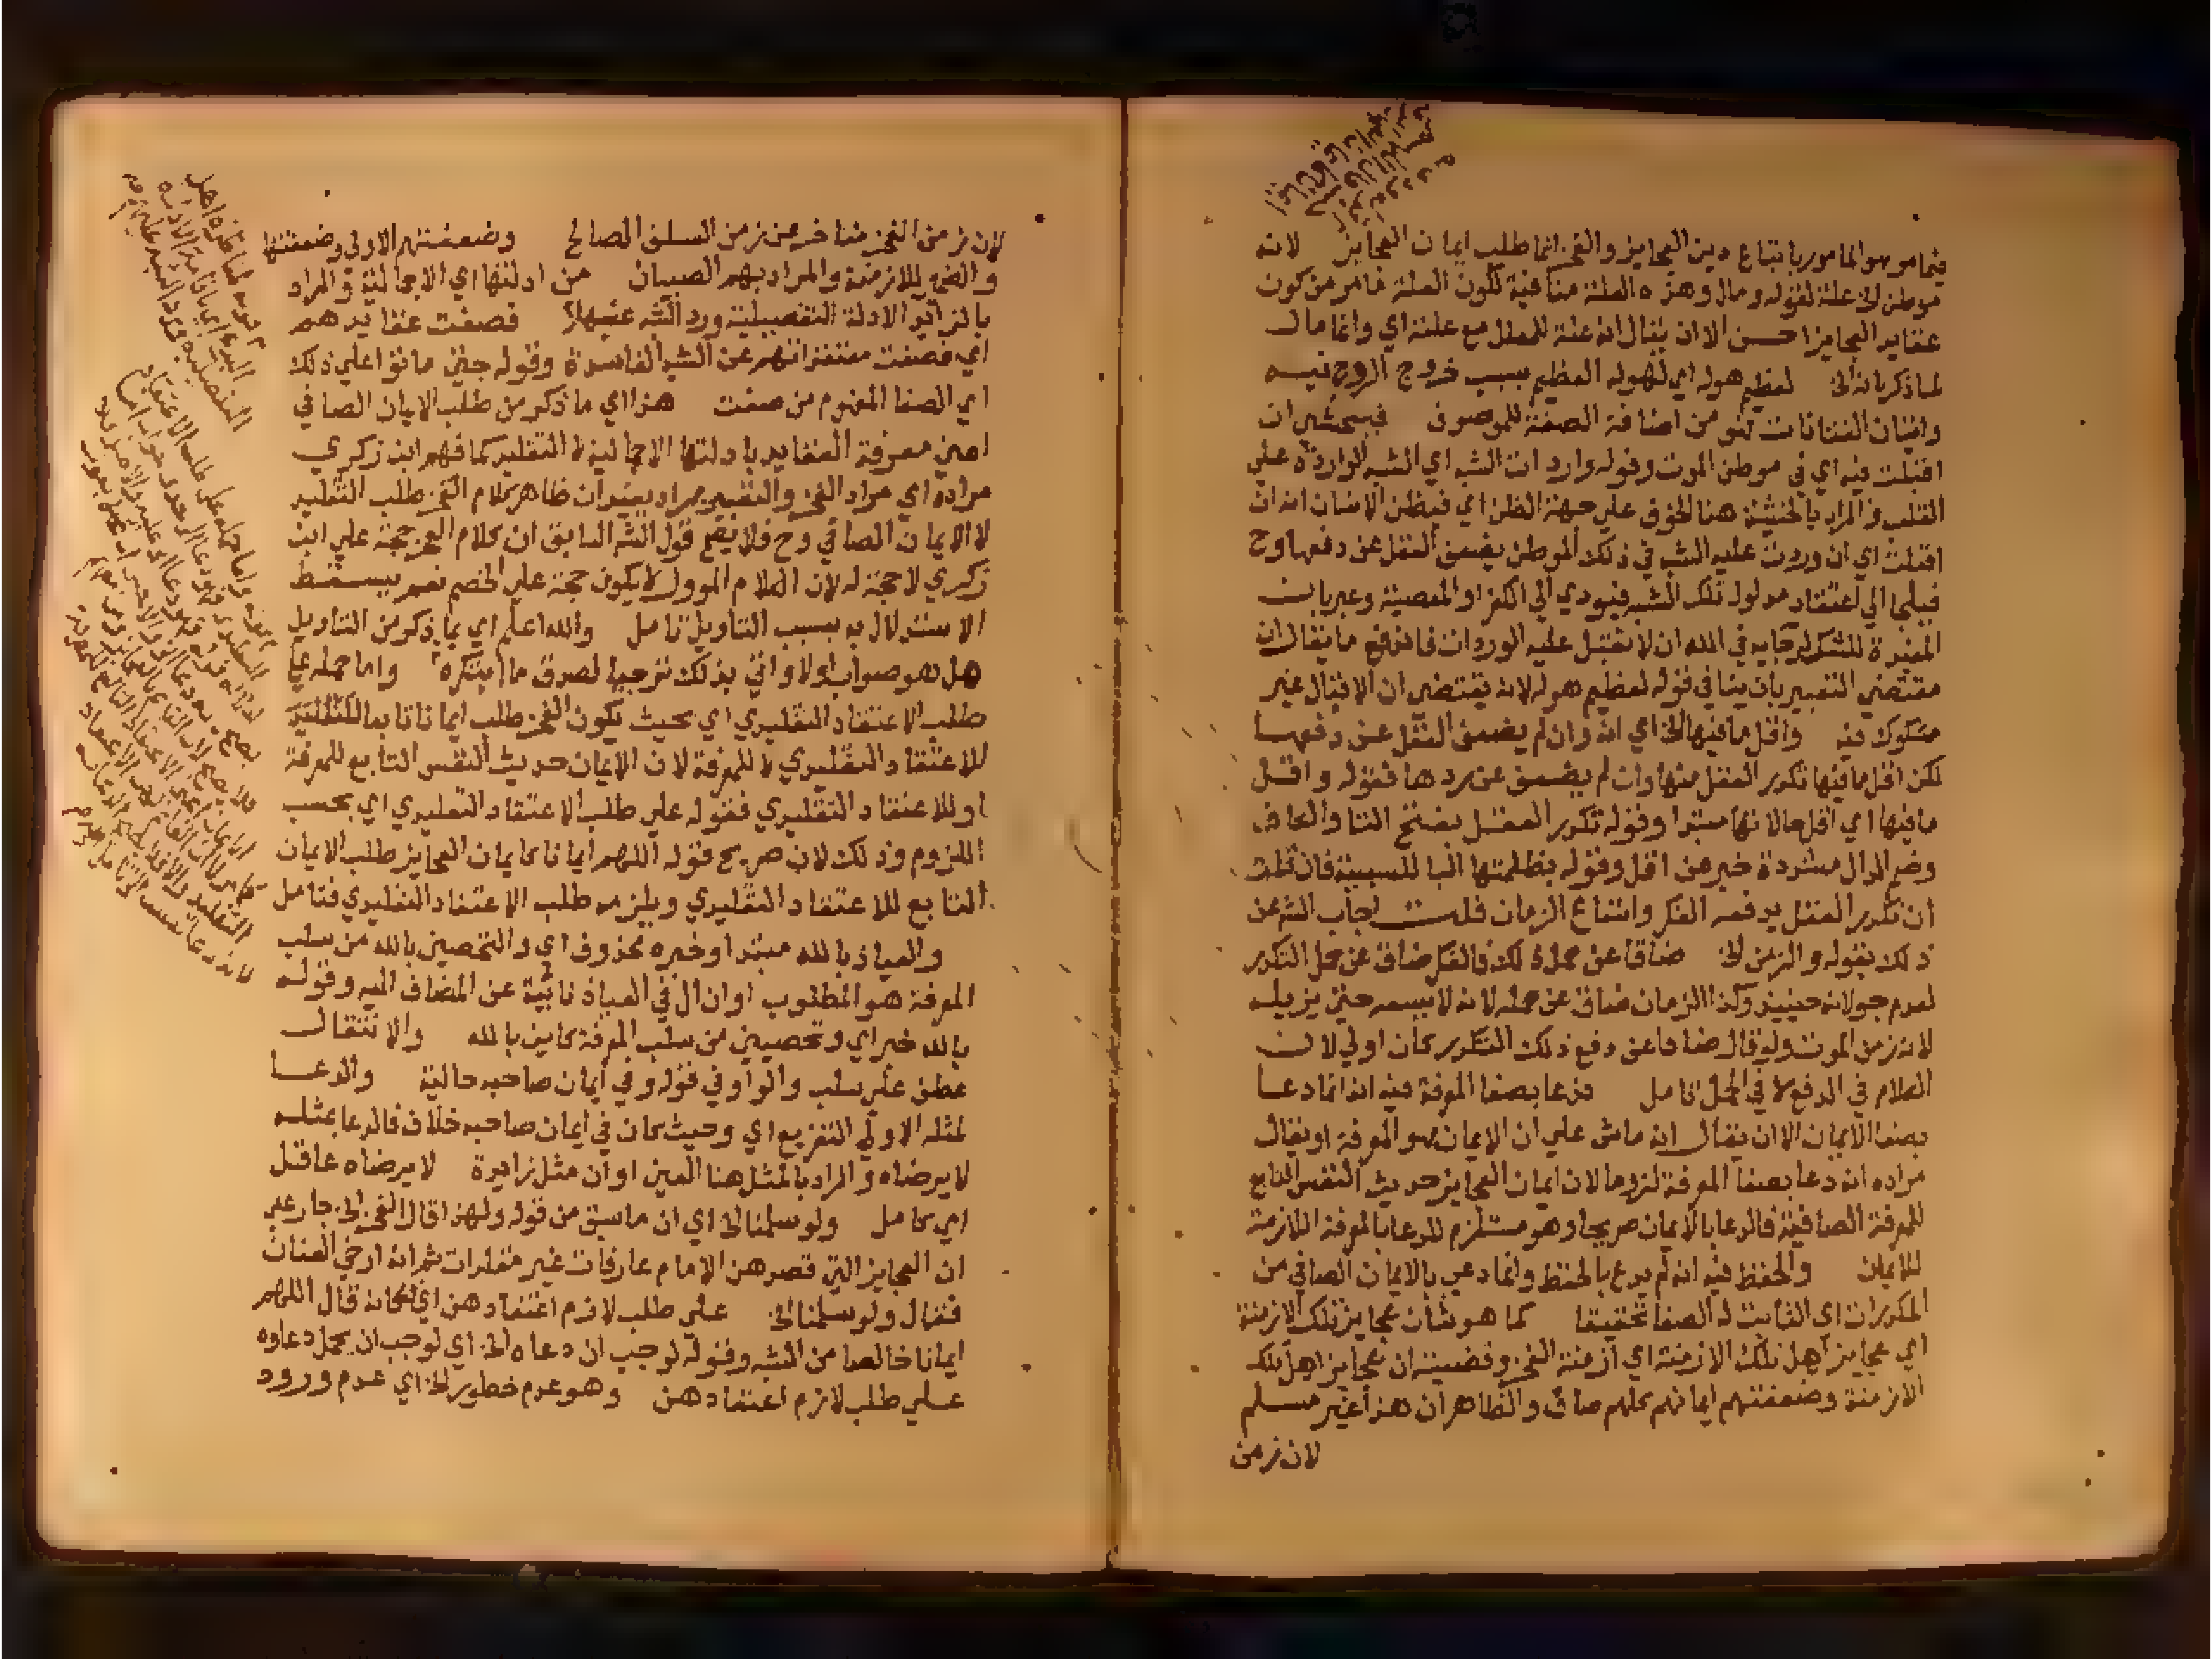 فيما مر هو المأمور باتباع دين العجايز والفخر انما طلب ايمان العجايز لانه
موطن الخ علة لقوله ومال وهذه العلة منافية لكون العلة فامر من كون
عقايد العجايز احسن الا ان يقال انه علة للمعلل مع علته اي وانما مال
لما ذكر يانه الخ لعظيم هوله اي لهوله العظيم بسبب خروج الروح فيه
واتيان الفتانات فهو من اضافة الصفة للموصوف فيخشى ان
اقبلت فيه اي في موطن الموت وقوله واردات الشبه اي الشبه الواردة على
القلب والمراد بالخشية هنا الخوف على جهة الظن اي فيظن الانسان انه ان
اقبلت اي ان وردت عليه الشبه في ذلك الموطن يضعف العقل عن دفعها وح
فيلجا الي اعتقاد مدلول تلك الشبه فيودي الي الكفر او المعصية وعبر بان
المفيدة للشك لرجايه في الله ان لا تقبل عليه الواردات فاندفع ما يقال ان
مقتضي التعبير بان ينافي قوله لعظيم هوله لانه يقتضي ان الاقبال غير
مشكوك فيه واقل ما فيها الخ اي انه وان لم يضعف العقل عن دفعها
لكن اقل ما فيها تكدر العقل منها وان لم يضعف عن ردها فقوله واقل
ما فيها اي اقل حالاتها مبتدا وقوله تكدر العقل بفتح التا والكاف
وضم الدال مشددة خبر عن اقل وقوله بظلمتها البا للسببية فان قلت
ان تكدر العقل يدفعه الفكر واتساع الزمان قلت اجاب الشه عن
ذلك بقوله والزمن الخ ضاقا عن حمل ذلك فالفكر ضاق عن حمل التكدر
لعدم جولانه حينيذ وكذا الزمان ضاق عن حمله لانه لا يسعه حتى يزيله
لانه زمن الموت ولو قال ضاقا عن دفع ذلك التكدر كان اولي لان
الكلام في الدفع لا في الحمل تامل فدعا بصفا المعرفة فيه انه انما دعا
بصفا الايمان الا ان يقال انه ماش علي ان الايمان هو المعرفة او يقال
مراده انه دعا بصفا المعرفة لزوما لان ايمان العجايز حديث النفس التابع
للمعرفة الصافية فالدعا بالايمان صريحا وهو مستلزم للدعا بالمعرفة اللازمة
للايمان والحفظ فيه انه لم يدع بالحفظ وانما دعي بالايمان الصافي من
المكدرات اي الثابت له الصفا تحقيقا كما هو شأن عجايز تلك الازمنة
اي عجايز اهل تلك الازمنة اي ازمنة الفخر وقضيته ان عجايز اهل تلك
الازمنة وضعفتهم ايمانهم كلهم صاف والظاهر ان هذا غير مسلم
لان زمن
لان زمن الفخر متاخر عن زمن السلف الصالح وضعفتهم الاولى وضعفتها
والضمير للازمنة والمراد بهم الصبيان من ادلتها اي الاجمالية والمراد
بالزايد الادلة التفصيلية ورد الشبه عنها فصفت عقايدهم
اي فصفت معتقداتهم عن الشبه الفاسدة وقوله حتى ماتوا علي ذلك
اي الصفا المفهوم من صفت هذا اي ما ذكر من طلب الايمان الصافي
اعني معرفة العقايد بادلتها الاجمالية لا التقليد كما فهم ابن زكري
مراده اي مراد الفخر والتعبير بمراد يفيد ان ظاهر كلام الفخر طلب التقليد
لا الايمان الصافي وح فلا يصح قول الشه السابق ان كلام الفخر حجة علي ابن
زكري لا حجة له لان الكلام المؤول لا يكون حجة علي الخصم نعم يسقط
الاستدلال به بسبب التاويل تامل والله اعلم اي بما ذكر من التاويل
هل هو صواب او لا واتي بذلك ترجيا لصدق ما ابتكره واما حمله علي
طلب الاعتقاد التقليدي اي بحيث يكون الفخر طلب ايمانا تابعا للتقليد
للاعتقاد التقليدي لا للمعرفة لان الايمان حديث النفس التابع للمعرفة
او للاعتقاد التقليدي فقوله علي طلب الاعتقاد التقليدي اي بحسب
اللزوم وذلك لان صريح قوله اللهم ايمانا كايمان العجايز طلب الايمان
التابع للاعتقاد التقليدي ويلزمه طلب الاعتقاد التقليدي فتامل
والعياذ بالله مبتدا وخبره محذوف اي والتحصين بالله من سلب
المعرفة هو المطلوب او ان ال في العياذ نائبة عن المضاف اليه وقوله
بالله خبر اي وتحصيني من سلب المعرفة كاين بالله والانتقال
عطف علي سلب والواو في قوله وفي ايمان صاحبه حالية والدعا
لمثله الاولي التفريع اي وحيث كان في ايمان صاحبه خلاف فالدعا بمثله
لا يرضاه والمراد بالمثل هنا العين او ان مثل زايدة لا يرضاه عاقل
اي كامل ولو سلمنا الخ اي ان ما سبق من قوله ولهذا قال الفخر الخ جار علي
ان العجايز التي قصدهن الامام عارفات غير مقلدات ثم انه ارخي العنان
فقال ولو سلمنا الخ علي طلب لازم اعتقادهن اي فكانه قال اللهم
ايمانا خالصا من الشبه وقوله لوجب ان دعاه الخ اي لوجب ان يحمل دعاوه
علي طلب لازم اعتقادهن وهو عدم خطور الخ اي عدم ورود